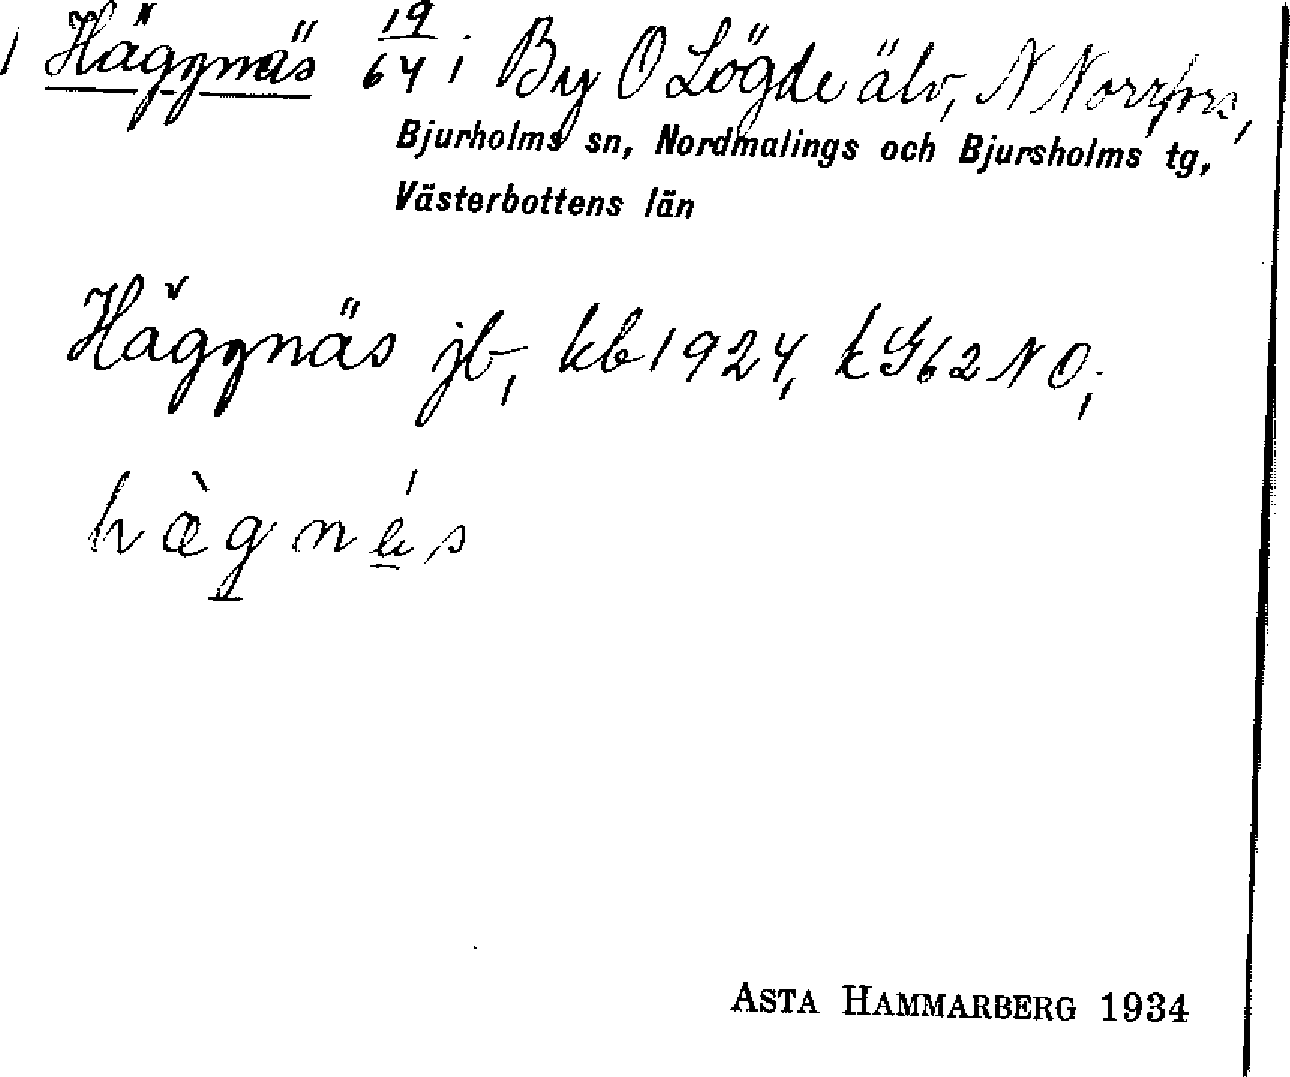 Häggnäs 19/64 i By O Lögde älv, N Norrfors,
Bjurholms sn, Nordmalings och Bjursholms tg,
Västerbottens län
Häggnäs jb, kb 1924, k G62NO;
hæ̀gnés
ASTA HAMMARBERG 1934